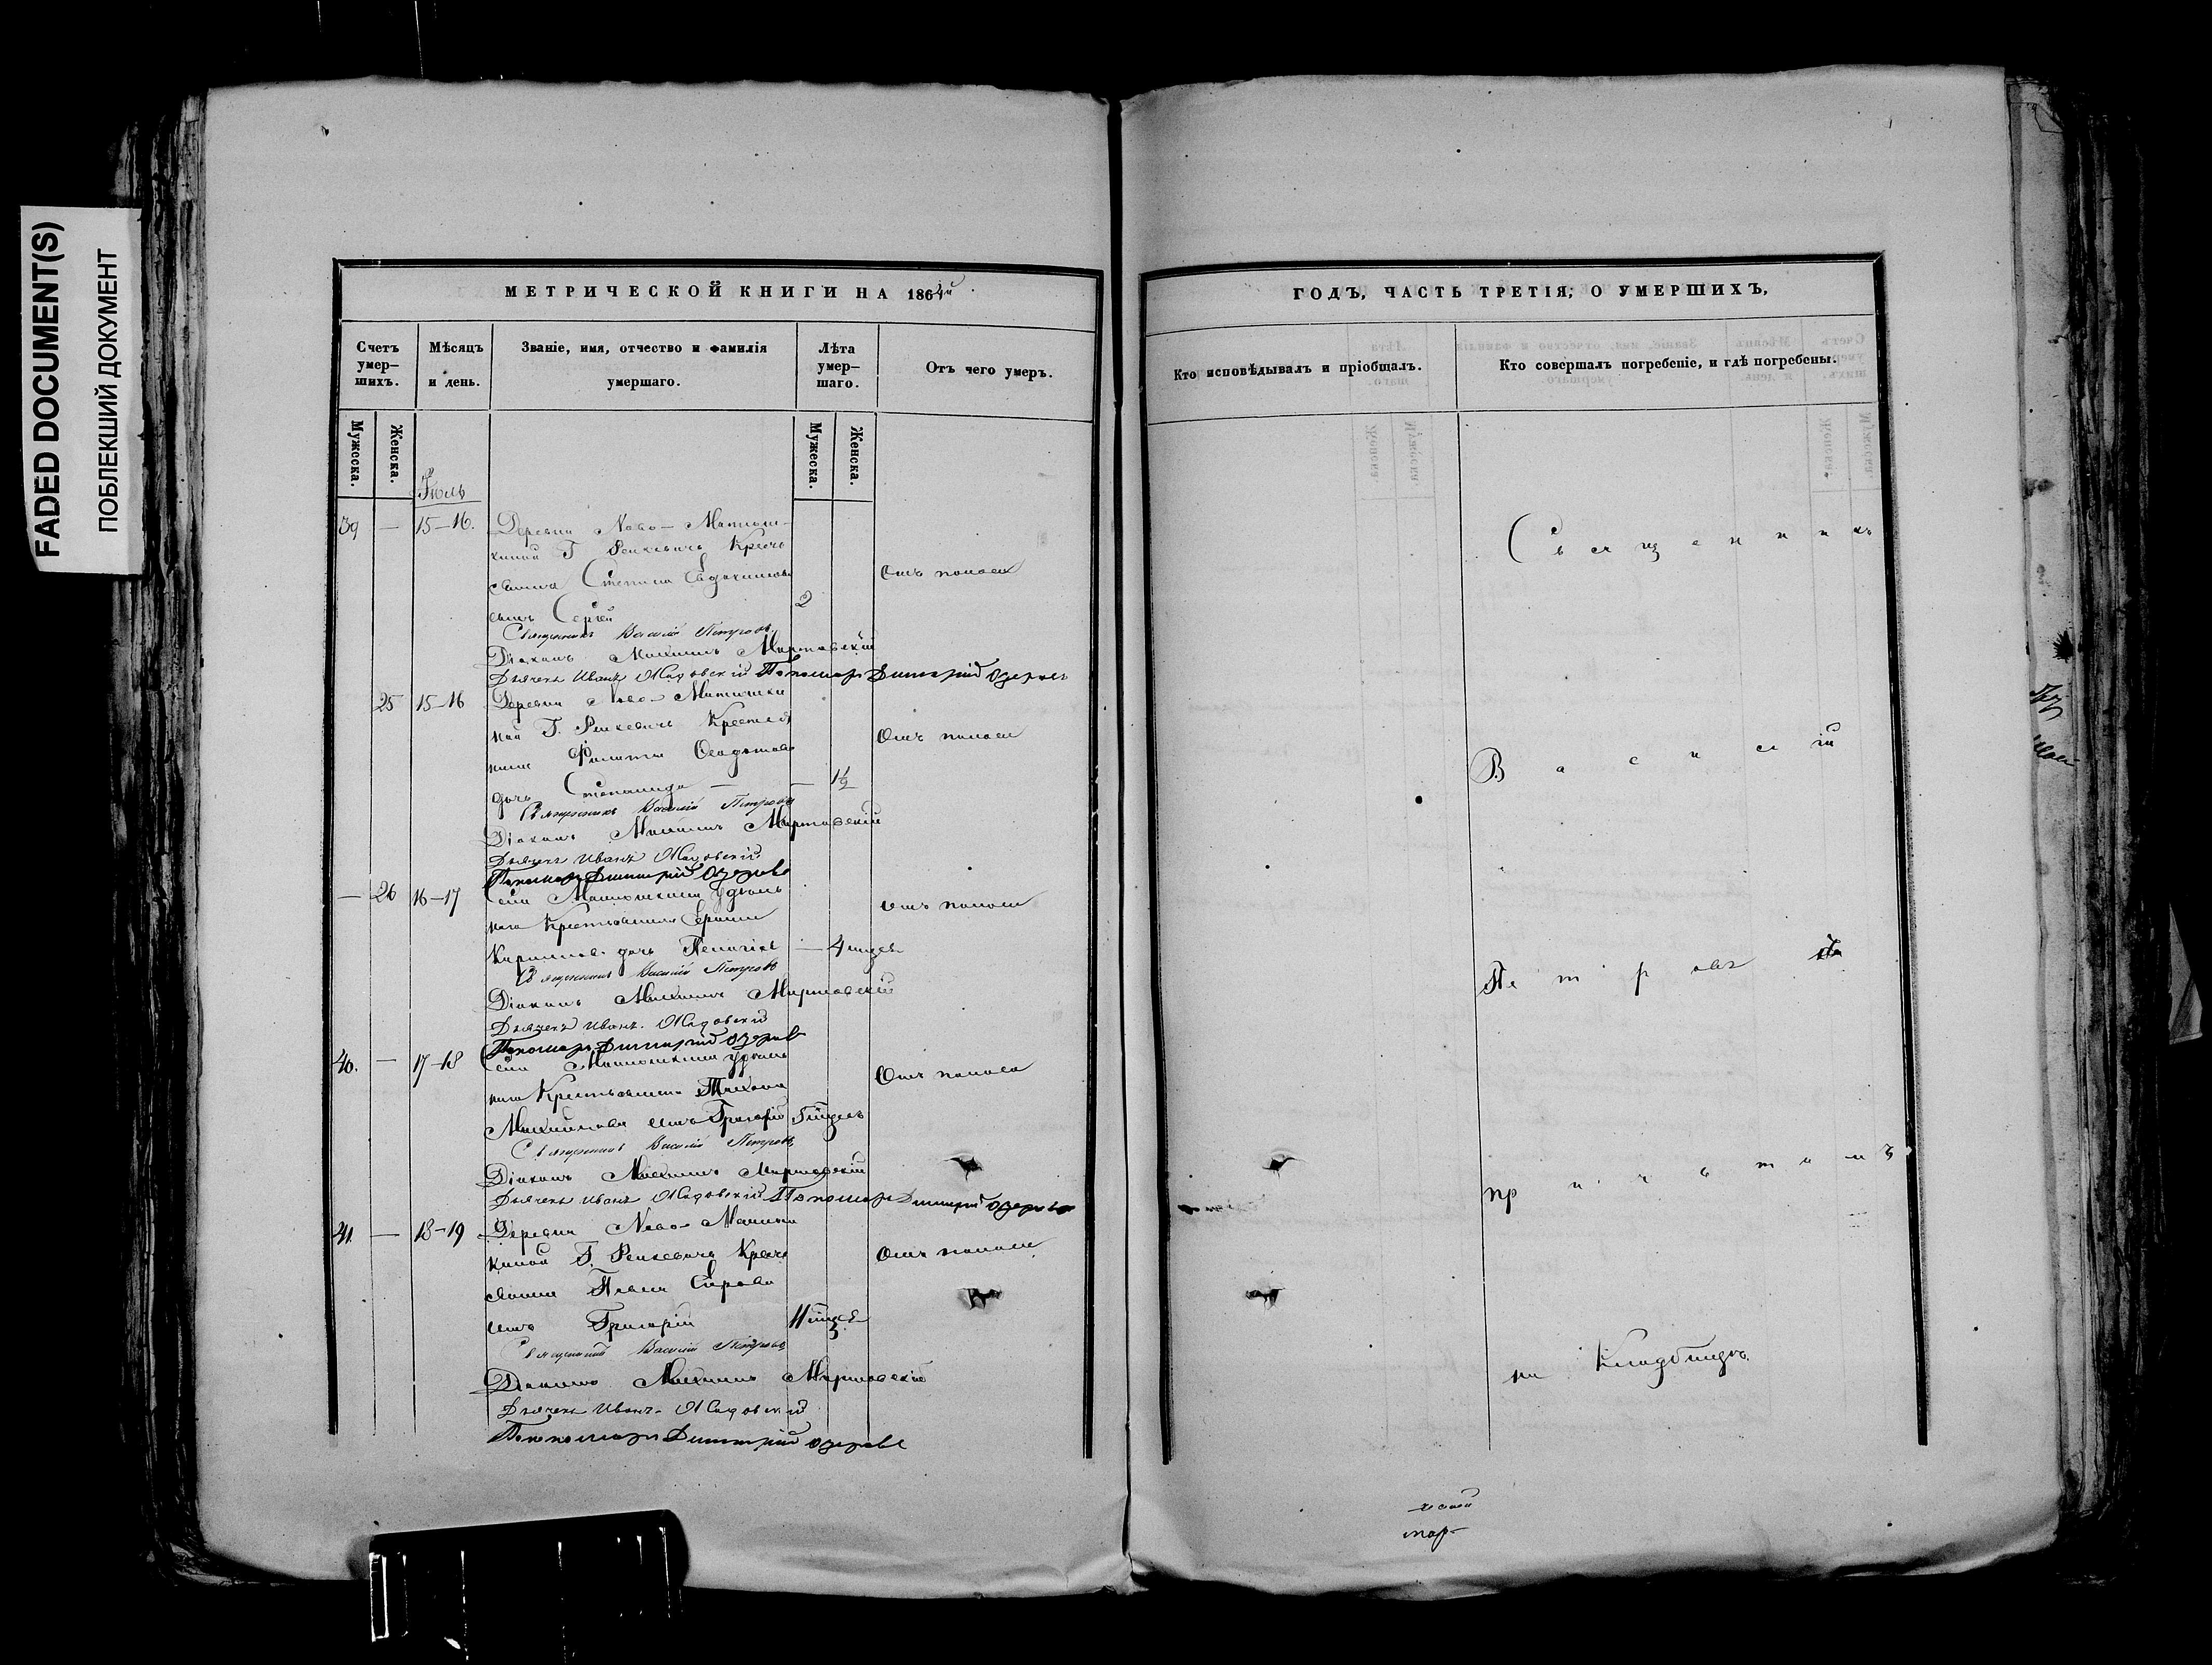 FADED DOCUMENT(S)
ПОБЛЕКШИЙ ДОКУМЕНТ
МЕТРИЧЕСКОЙ КНИГИ НА 1864й
Счетъ умер-шихъ.
Мѣсяцъ и день.
Званіе, имя, отчество и фамилія умершаго.
Лѣта умер-шаго.
Отъ чего умеръ.
Мужеска.
Женска.
Іюль
Мужеска.
Женска.
39 — 15–16. Деревни Ново–Матюш-
киной Г. Ренкевичь Кресть
янина Степана Евдокимова Отъ поноса
сынъ Сергѣй 2
Священникъ Василій Петровъ
Діаконъ Михаилъ Мартовскій
Дьячекъ Иванъ Пономарь Димитрій Озеровъ
25 15–16 Деревни Ново–Матюшки
ной Г. Ренкевичь Крестья
нина Филиппа Отъ поноса
дочь Степанида — — 1½
Священникъ Василій Петровъ
Діаконъ Михаилъ Мартовскій
Дьячекъ Иванъ
Пономарь Димитрій Озеровъ
— 26 16–17 Села Матюшкина удѣль
наго Крестьянина Отъ поноса
Кирилова дочь Пелагія — 4 нидѣл
Священникъ Василій Петровъ
Діаконъ Михаилъ Мартовскій
Дьячекъ Иванъ
Пономарь Димитрій Озеровъ
40. — 17–18 Села Матюшкина удѣль
наго Крестьянина Тихона Отъ поноса
Михайлова сынъ Григорій
Священникъ Василій Петровъ
Діаконъ Михаилъ Мартовскій
Дьячекъ Иванъ Пономарь Димитрій Озеровъ
41. — 18–19 Деревни Ново–Матюш
киной Г. Ренкевичь Кресть
янина Отъ поноса
сынъ Григорій
Священникъ Василій Петровъ
Діаконъ Михаилъ Мартовскій
Дьячекъ Иванъ
Пономарь Димитрій Озеровъ
ГОДЪ, ЧАСТЬ ТРЕТІЯ, О УМЕРШИХЪ,
Кто исповѣдывалъ и пріобщалъ.
Кто совершалъ погребеніе, и гдѣ погребены.
Священникъ
Василій
Петровъ съ
причтомъ
на Кладбищѣ.